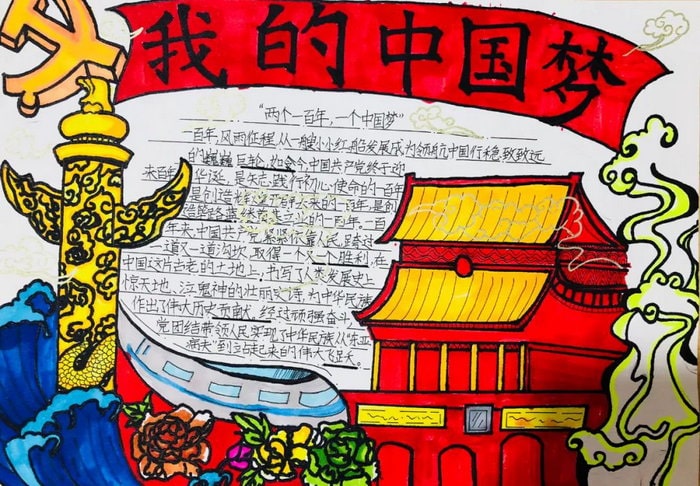 我的中国梦
"两个一百年,一个中国梦"
一百年,风雨征程,从一艘小小红船发展成为领航中国行稳致致远
的巍巍巨轮,如今中国共产党终于迎
来百年华诞。是矢志践行初心使命的一百年,
是创造辉煌开辟未来的一百年。一百
年来,中国共产党紧紧依靠人民,跨过一
道又一道沟坎,取得一个又一个胜利,在
中国这片古老的土地上,书写了人类发展史上
惊天地、泣鬼神的壮丽史诗,为中华民族
作出了伟大历史贡献。经过顽强奋斗,
党团结带领人民实现了中华民族从"东亚
病夫"到站起来的伟大飞跃。